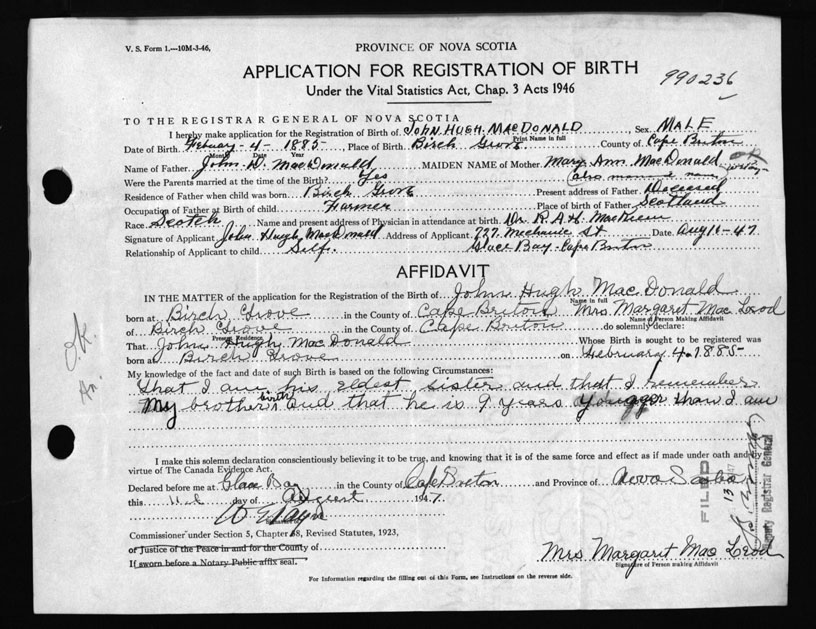 V. S. Form 1.—10M-3-46,
PROVINCE OF NOVA SCOTIA
APPLICATION FOR REGISTRATION OF BIRTH
Under the Vital Statistics Act, Chap. 3 Acts 1946
990236
TO THE REGISTRAR GENERAL OF NOVA SCOTIA
I hereby make application for the Registration of Birth of JOHN HUGH MACDONALD, Sex MALE
Print Name in full
Date of Birth February - 4 - 1885 - , Place of Birth Birch Grove County of Cape Breton
Month Date Year
Name of Father John D. MacDonald MAIDEN NAME of Mother Mary Ann MacDonald
Were the Parents married at the time of the Birth? Yes (also married name)
Residence of Father when child was born Birch Grove Present address of Father Deceased
Occupation of Father at Birth of child Farmer Place of birth of Father Scotland
Race Scotch Name and present address of Physician in attendance at birth Dr. R. A. H. MacKeen
Signature of Applicant John Hugh MacDonald Address of Applicant 727 Mechanic St Date Aug 16-47
Relationship of Applicant to child Self. Glace Bay - Cape Breton
AFFIDAVIT
IN THE MATTER of the application for the Registration of Birth of John Hugh MacDonald
Name in full
born at Birch Grove in the County of Cape Breton Mrs. Margaret MacLeod
Name of Person Making Affidavit
of Birch Grove in the County of Cape Breton do solemnly declare:
Present Residence
That John Hugh MacDonald Whose Birth is sought to be registered was
born at Birch Grove on February 4. 1885-
My knowledge of the fact and date of such Birth is based on the following Circumstances:
that I am his eldest sister and that I remember
My brother's birth and that he is 9 years younger than I am
O.K.
I make this solemn declaration conscientiously believing it to be true, and knowing that it is of the same force and effect as if made under oath and by
virtue of The Canada Evidence Act.
Declared before me at Glace Bay in the County of Cape Breton and Province of Nova Scotia
this 11th day of August 1947
Commissioner under Section 5, Chapter 68, Revised Statutes, 1923,
or Justice of the Peace in and for the County of
If sworn before a Notary Public affix seal.
Mrs Margaret Mac Leod
Signature of Person making Affidavit
FILED
13
47
Deputy Registrar General
For Information regarding the filling out of this Form, see Instructions on the reverse side.